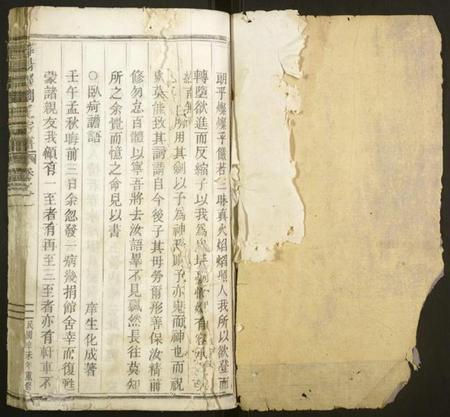 明乎燦燦乎儼若三昧真火焰焰照人我所以欲登而
轉墮欲進而反縮子以我為
所用其劍以予為神耶則予亦鬼而神也而祝
莫能致其詞請自今後子其毋勞爾形善保汝精前
修勿怠百體以寧吾將去汝語畢不見飄然長往莫知
所之余覺而憶之命兒以書
○臥病譫語
庠生化成著
壬午孟秋晦前三日余忽發一病幾捐館舍幸而復甦
蒙諸親友我顧有一至者有再至三至者亦有軒車不
民國辛未年重修